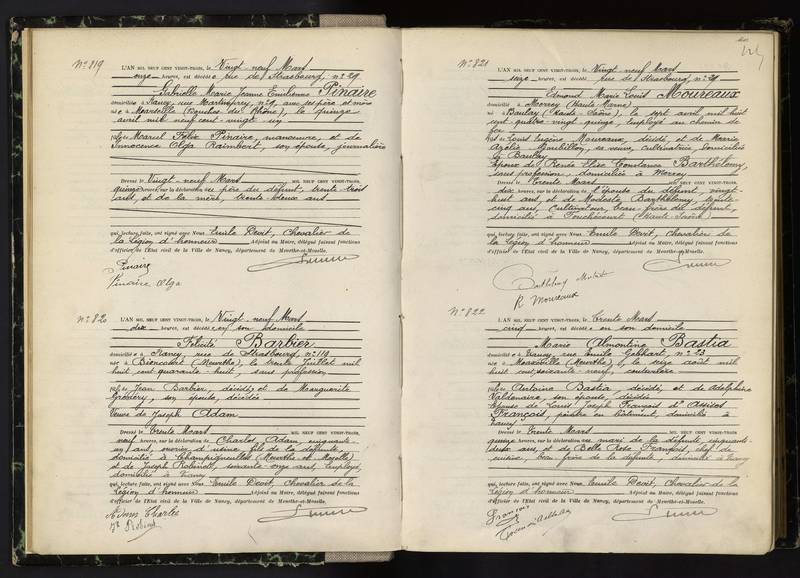 N° 819
L'AN MIL NEUF CENT VINGT-TROIS, le Vingt-neuf Mars
onze heures, est décédée rue de Strasbourg, n° 29,
Gabrielle Marie Jeanne Emilienne Pinaire
domiciliée à Nancy, rue n° 9, avec ses père et mère
née à Marseille (Bouches du Rhône), le quinze
avril mil neuf cent vingt-un
fille de Marcel Félix Pinaire, manœuvre, et de
Innocence Olga Raimbert, son épouse, journalière
DRESSÉ le Vingt-neuf Mars MIL NEUF CENT VINGT-TROIS,
quinze heures, sur la déclaration des père du défunt, trente trois
ans, et de la mère, trente deux ans
qui, lecture faite, ont signé avec Nous Emile Devit, Chevalier de
la Légion d'honneur Adjoint au Maire, délégué faisant fonctions
d'officier de l'État civil de la Ville de Nancy, département de Meurthe-et-Moselle.
Pinaire
Pinaire Olga
N° 820
L'AN MIL NEUF CENT VINGT-TROIS, le Vingt-neuf Mars
dix heures, est décédée en son domicile
Félicité Barbier
domiciliée à Nancy, rue de Strasbourg, n° 119
née à Bioncourt (Meurthe), le trente Juillet mil
huit cent quarante-huit, sans profession
fille de Jean Barbier, décédé, et de Marguerite
son épouse, décédée
Veuve de Joseph Adam
DRESSÉ le Trente Mars MIL NEUF CENT VINGT-TROIS,
neuf heures, sur la déclaration de Charles Adam, cinquante-
un ans, ouvrier d'usine, fils de la défunte,
domicilié à Champigneulles (Meurthe et Moselle)
et de Joseph Robinet, soixante-onze ans, employé,
domicilié à Nancy
qui, lecture faite, ont signé avec Nous Emile Devit, Chevalier de la
Légion d'honneur Adjoint au Maire, délégué faisant fonctions
d'officier de l'État civil de la Ville de Nancy, département de Meurthe-et-Moselle.
Adam Charles
N° 821
L'AN MIL NEUF CENT VINGT-TROIS, le Vingt neuf Mars
seize heures, est décédé rue de Strasbourg, n° 29
Edmond Marie Louis Moureaux
domicilié à Merrey (Haute-Marne)
né à Baulay (Haute-Saône), le sept avril mil huit
cent quatre vingt-quinze, employé au chemin de
fer
fils de Louis Eugène Moureaux, décédé, et de Marie
sa veuve, cultivatrice, domiciliée
à Baulay
Epoux de Renée Elise Constance Barthélemy,
sans profession, domiciliée à Merrey
DRESSÉ le Trente Mars MIL NEUF CENT VINGT-TROIS,
dix heures, sur la déclaration de l'épouse du défunt, vingt-
huit ans, et de Modeste Barthélemy, trente-
cinq ans, cultivateur, beau-frère du défunt,
domicilié à Fouchécourt (Haute-Saône)
qui, lecture faite, ont signé avec Nous Emile Devit, Chevalier de
la Légion d'honneur Adjoint au Maire, délégué faisant fonctions
d'officier de l'État civil de la Ville de Nancy, département de Meurthe-et-Moselle.
Barthélemy
R. Moureaux
N° 822
L'AN MIL NEUF CENT VINGT-TROIS, le Trente Mars
cinq heures, est décédée en son domicile
Marie Almontine Bastia
domiciliée à Nancy, rue Emile Gebhart, n° 23
née à Maxéville (Meurthe), le seize août mil
huit cent soixante-neuf, couturière
fille de Antoine Bastia, décédé, et de Adelphine
Valdenaire, son épouse, décédée
Epouse de Louis Joseph François d'Assises
François, peintre en bâtiment, domicilié à
Nancy
DRESSÉ le Trente Mars MIL NEUF CENT VINGT-TROIS,
quinze heures, sur la déclaration des mari de la défunte, cinquante-
deux ans, et de Belle Rose François, chef de
beau frère de la défunte, domicilié à Nancy
qui, lecture faite, ont signé avec Nous Emile Devit, Chevalier de la
Légion d'honneur Adjoint au Maire, délégué faisant fonctions
d'officier de l'État civil de la Ville de Nancy, département de Meurthe-et-Moselle.
François